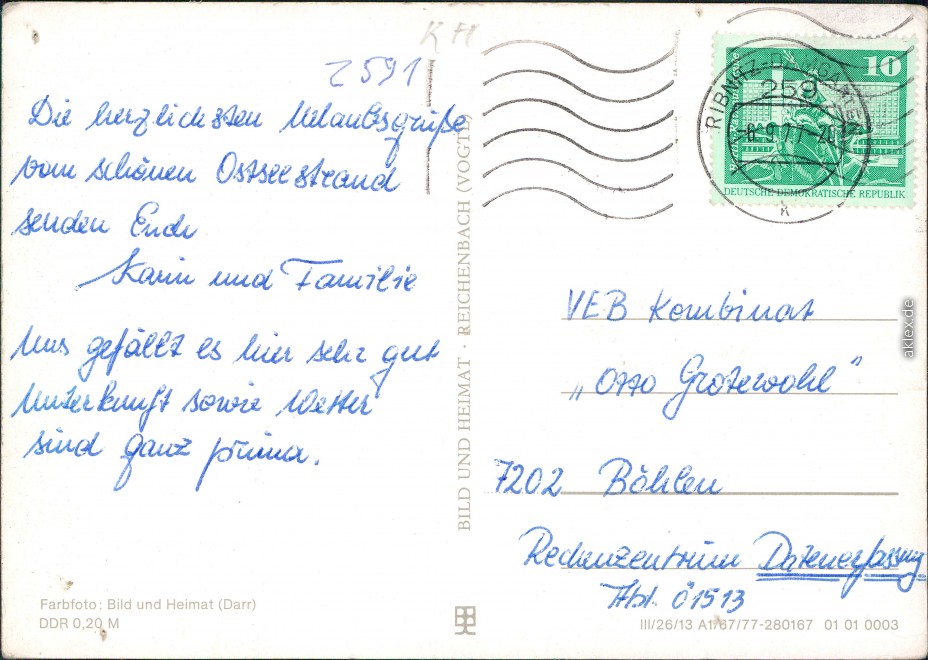 KH
2591
Die herzlichsten Urlaubsgrüße
vom schönen Ostseestrand
senden Euch
Karin und Familie
Uns gefällt es hier sehr gut
Unterkunft sowie Wetter
sind ganz prima.
Farbfoto: Bild und Heimat (Darr)
DDR 0,20 M
BILD UND HEIMAT · REICHENBACH (VOGTL)
10
DEUTSCHE DEMOKRATISCHE REPUBLIK
RIBNITZ-DAMGARTEN
259
VEB Kombinat
„Otto Grotewohl“
7202 Böhlen
Rechenzentrum Datenerfassung
Abt. Ö1513
III/26/13 A1/67/77-280167 01 01 0003
aklex.de